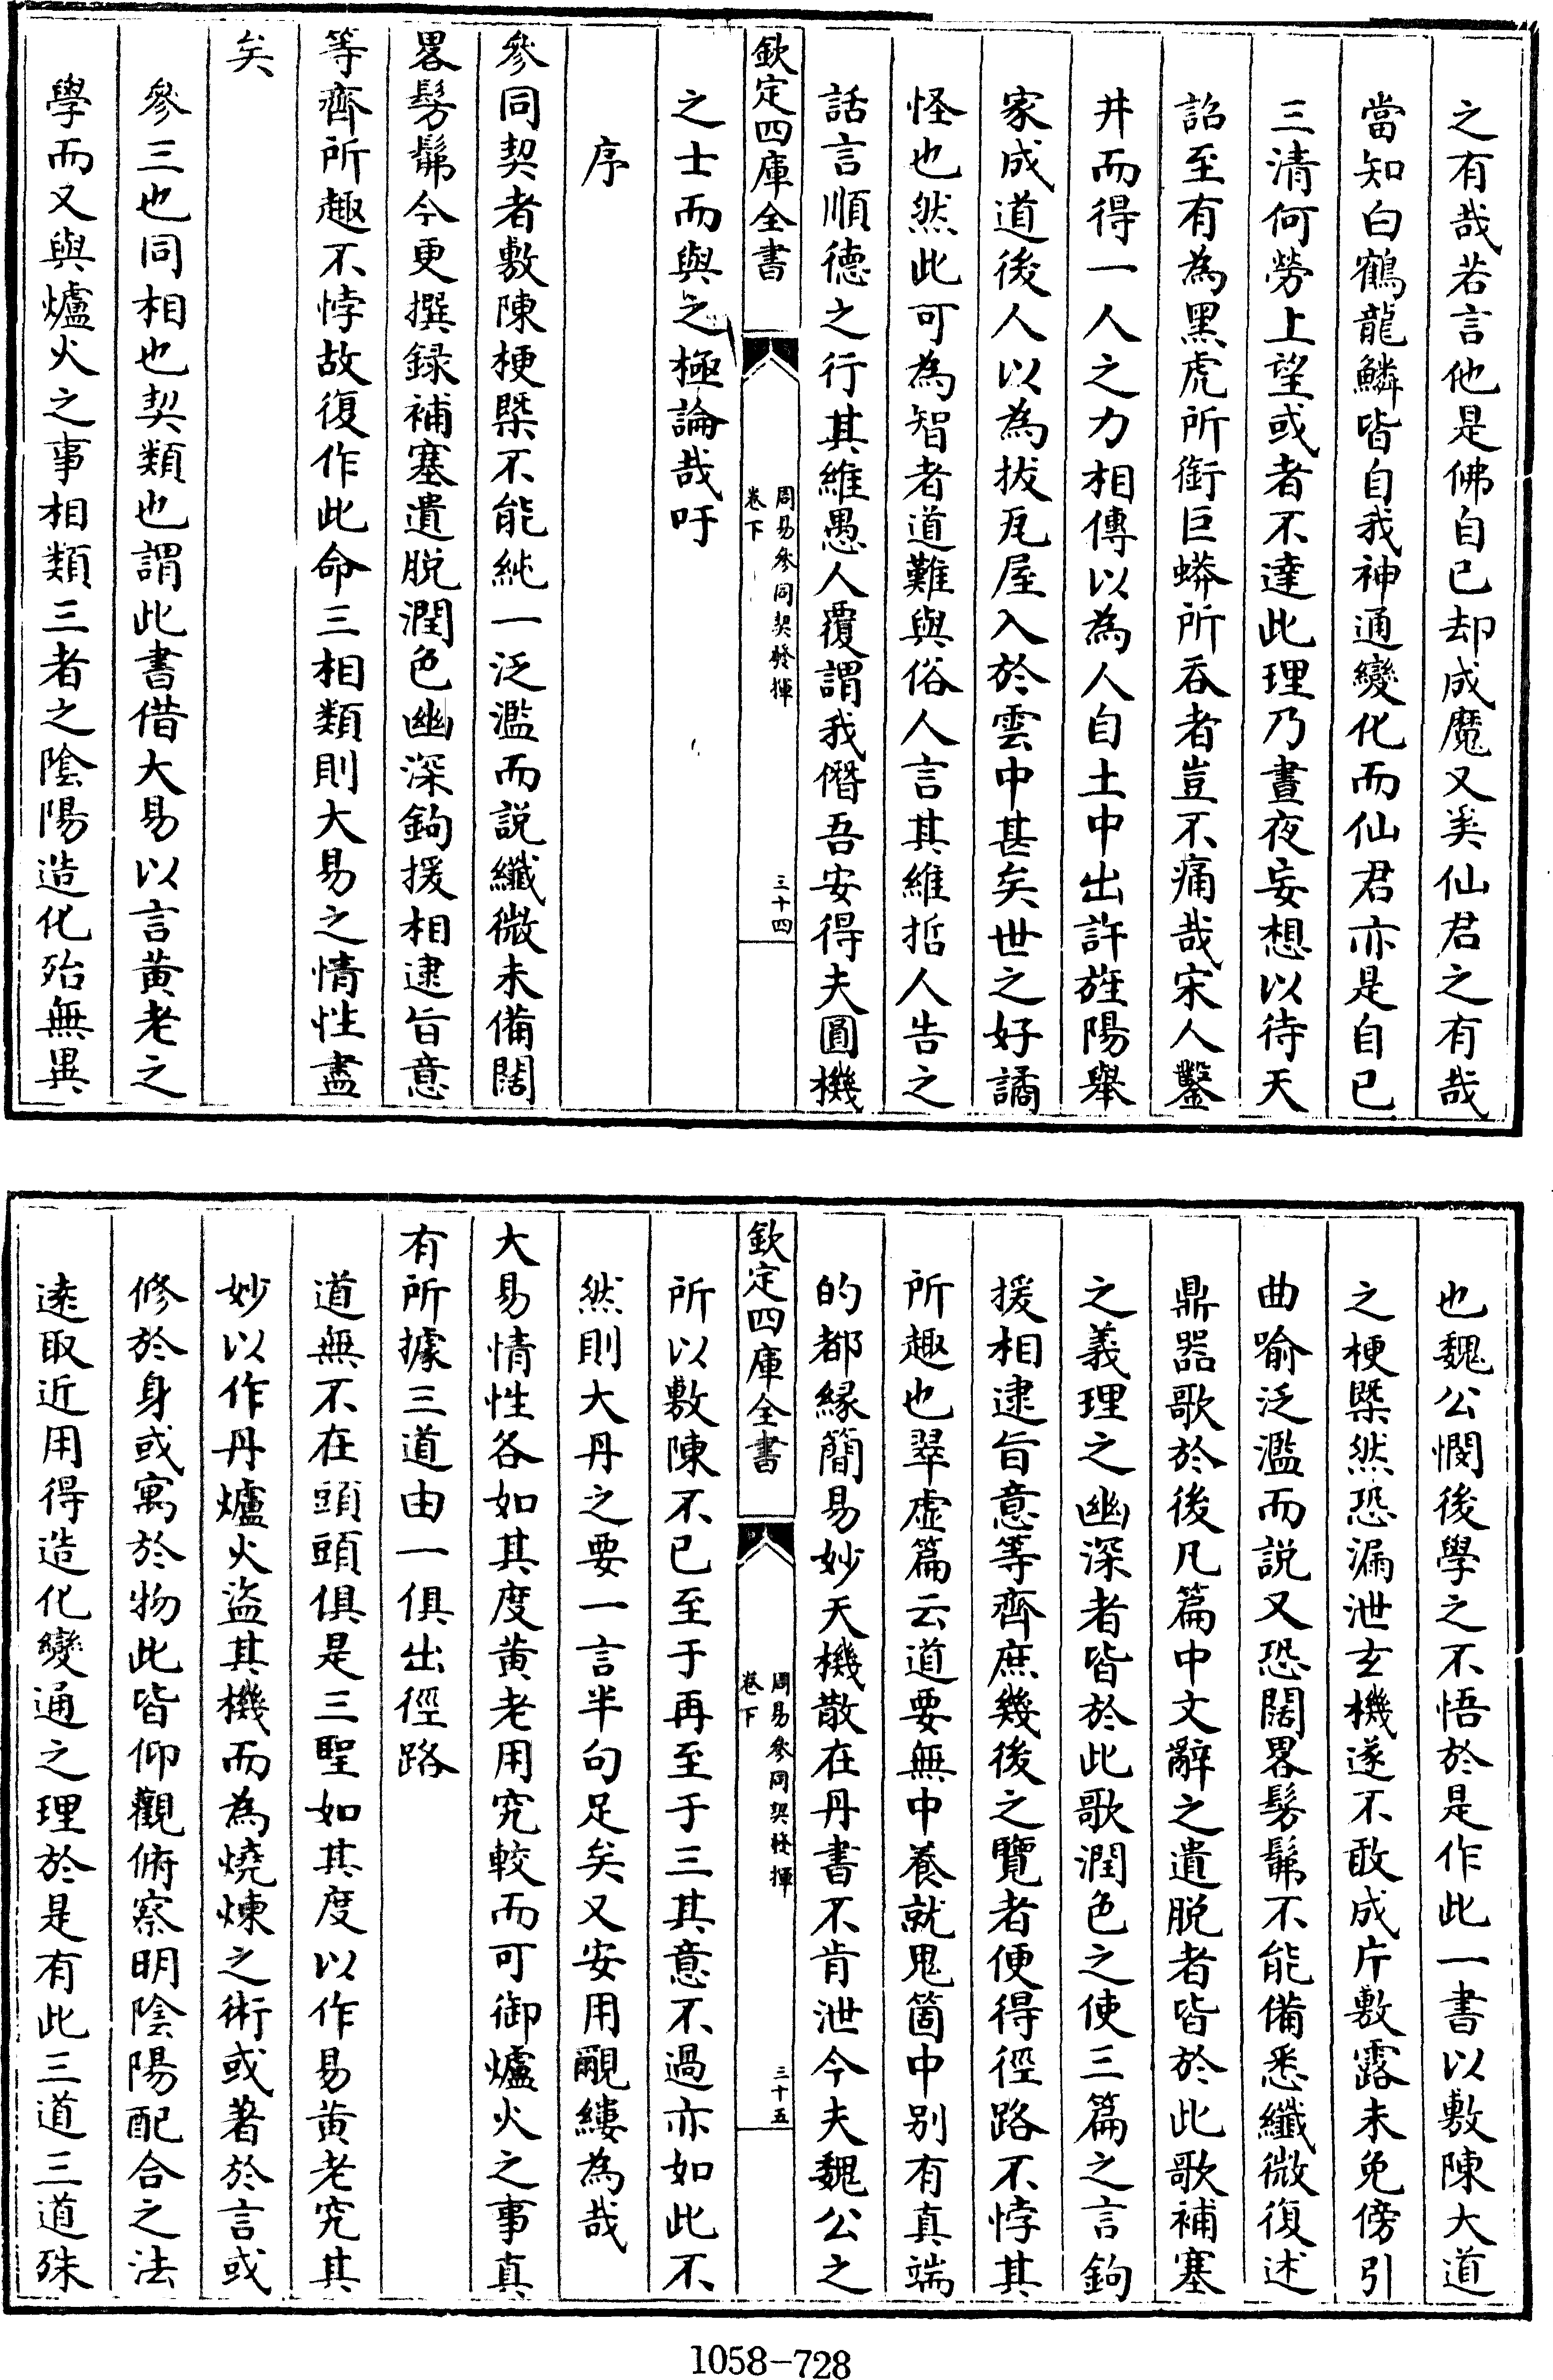 之有哉若言他是佛自己却成魔又奚仙君之有哉
當知白鶴龍鱗皆自我神通變化而仙君亦是自已
三清何勞上望或者不達此理乃晝夜妄想以待天
詔至有為黑虎所銜巨蟒所吞者豈不痛哉宋人鑿
井而得一人之力相傳以為人自土中出許旌陽舉
家成道後人以為拔瓦屋入於雲中甚矣世之好譎
怪也然此可為智者道難與俗人言其維哲人告之
話言順德之行其維愚人覆謂我僭吾安得夫圓機
欽定四庫全書
周易參同契發揮
卷下
三十四
之士而與之極論哉吁
序
參同契者敷陳梗槩不能純一泛濫而説纖微未備闊
畧髣髴今更撰録補塞遺脱潤色幽深鉤援相逮旨意
等齊所趣不悖故復作此命三相類則大易之情性盡
矣
參三也同相也契類也謂此書借大易以言黄老之
學而又與爐火之事相類三者之陰陽造化殆無異
也魏公憫後學之不悟於是作此一書以敷陳大道
之梗槩然恐漏泄玄機遂不敢成片敷露未免傍引
曲喻泛濫而説又恐闊畧髣髴不能備悉纖微復述
鼎器歌於後凡篇中文辭之遺脱者皆於此歌補塞
之義理之幽深者皆於此歌潤色之使三篇之言鉤
援相逮旨意等齊庶幾後之覽者便得徑路不悖其
所趣也翠虛篇云道要無中養就鬼箇中别有真端
的都縁簡易妙天機散在丹書不肯泄今夫魏公之
欽定四庫全書
周易參同契發揮
卷下
三十五
所以敷陳不已至于再至于三其意不過亦如此不
然則大丹之要一言半句足矣又安用覼縷為哉
大易情性各如其度黄老用究較而可御爐火之事真
有所據三道由一俱出徑路
道無不在頭頭俱是三聖如其度以作易黄老究其
妙以作丹爐火盜其機而為燒煉之術或著於言或
修於身或寓於物此皆仰觀俯察明陰陽配合之法
遠取近用得造化變通之理於是有此三道三道殊
1058-728